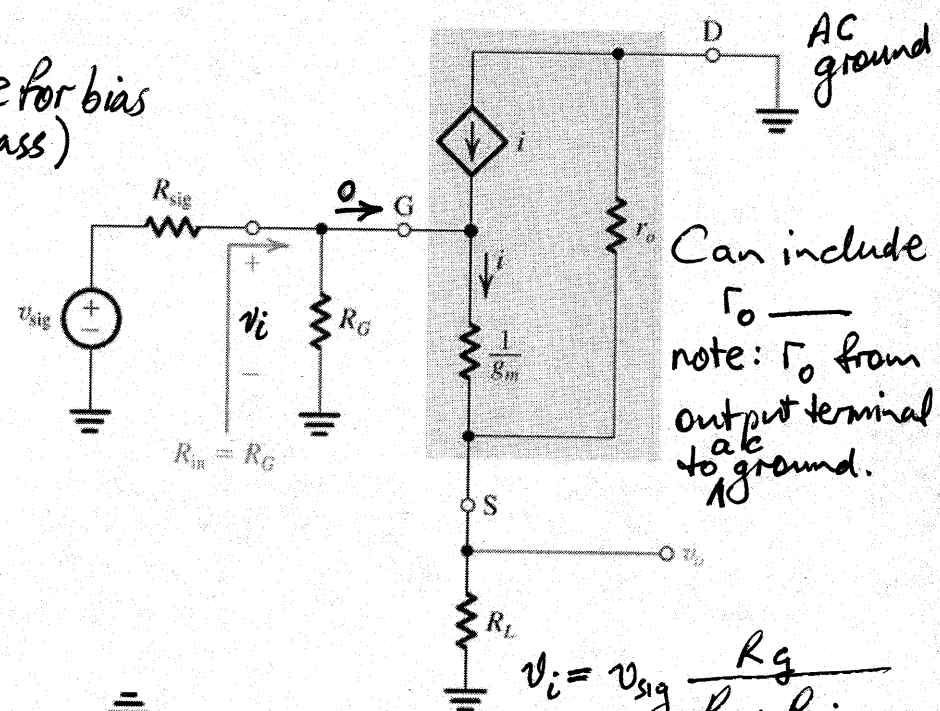 e for bias
ass)
AC
ground
D
i
R_sig
0
G
r_o
i
v_sig
+
−
+
v_i
−
R_G
1/g_m
R_in = R_G
Can include
r_o
note: r_o from
output terminal
to ac ground.
S
v_o
R_L
v_i = v_sig Rg